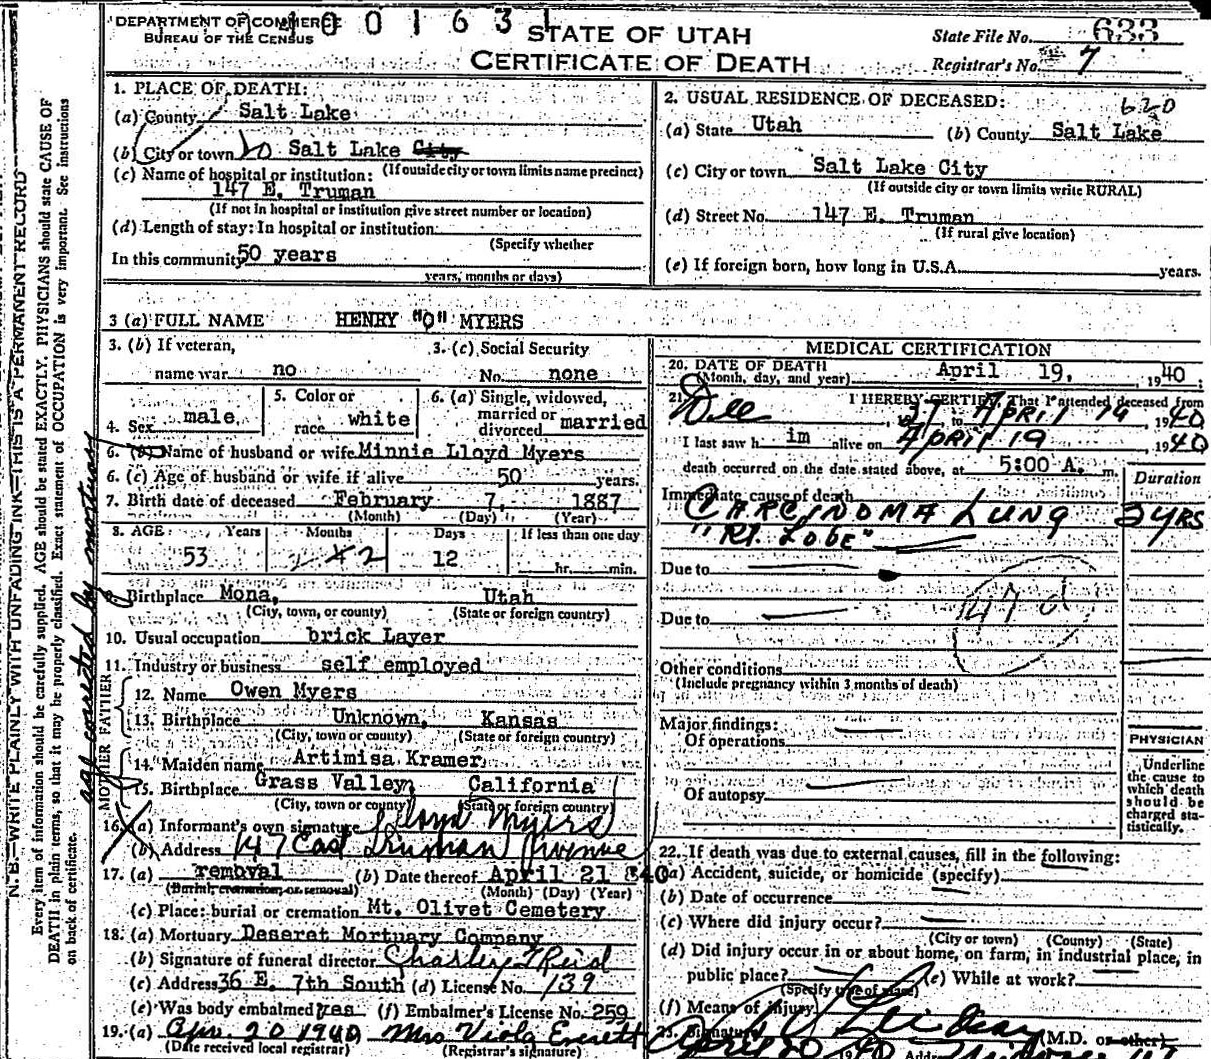 DEPARTMENT OF COMMERCE
BUREAU OF THE CENSUS
4 0 0 1 6 3 1
STATE OF UTAH
CERTIFICATE OF DEATH
State File No. 633
Registrar's No. 7
N. B.—WRITE PLAINLY WITH UNFADING INK—THIS IS A PERMANENT RECORD
Every item of information should be carefully supplied. AGE should be stated EXACTLY. PHYSICIANS should state CAUSE OF
DEATH in plain terms, so that it may be properly classified. Exact statement of OCCUPATION is very important. See instructions
on back of certificate.
by mortuary
1. PLACE OF DEATH:
(a) County Salt Lake
(b) City or town Salt Lake City
(If outside city or town limits name precinct)
(c) Name of hospital or institution:
147 E. Truman
(If not in hospital or institution give street number or location)
(d) Length of stay: In hospital or institution
(Specify whether
In this community 50 years
years, months or days)
2. USUAL RESIDENCE OF DECEASED:
620
(a) State Utah (b) County Salt Lake
(c) City or town Salt Lake City
(If outside city or town limits write RURAL)
(d) Street No. 147 E. Truman
(If rural give location)
(e) If foreign born, how long in U.S.A. years.
3 (a) FULL NAME HENRY "O" MYERS
3. (b) If veteran,
name war no
3. (c) Social Security
No. none
4. Sex male
5. Color or
race white
6. (a) Single, widowed,
married or
divorced married
6. (b) Name of husband or wife Minnie Lloyd Myers
6. (c) Age of husband or wife if alive 50 years.
7. Birth date of deceased February 7, 1887
(Month) (Day) (Year)
8. AGE Years Months Days If less than one day
53 2 12 hr. min.
9. Birthplace Mona, Utah
(City, town, or county) (State or foreign country)
10. Usual occupation brick Layer
11. Industry or business self employed
FATHER
12. Name Owen Myers
13. Birthplace Unknown, Kansas
(City, town or county) (State or foreign country)
MOTHER
14. Maiden name Artimisa Kramer
15. Birthplace Grass Valley, California
(City, town or county) (State or foreign country)
16. (a) Informant's own signature Lloyd Myers
(b) Address 147 East Truman Avenue
17. (a) removal (b) Date thereof April 21 1940
(Burial, cremation, or removal) (Month) (Day) (Year)
(c) Place: burial or cremation Mt. Olivet Cemetery
18. (a) Mortuary Deseret Mortuary Company
(b) Signature of funeral director Charley T Reid
(c) Address 36 E. 7th South (d) License No. 139
(e) Was body embalmed yes (f) Embalmer's License No. 259
19. (a) Apr. 20 1940 Mrs Viola Everett
(Date received local registrar) (Registrar's signature)
MEDICAL CERTIFICATION
20. DATE OF DEATH
(Month, day, and year) April 19, 1940
21. I HEREBY CERTIFY, That I attended deceased from
Dec 1937 to April 19 1940
I last saw him alive on April 19 1940
death occurred on the date stated above, at 5:00 A. m.
Duration
Immediate cause of death
CARCINOMA LUNG 3 YRS
"Rt. LOBE"
Due to
47 d
Due to
Other conditions
(Include pregnancy within 3 months of death)
Major findings:
Of operations
Of autopsy
PHYSICIAN
Underline
the cause to
which death
should be
charged sta-
tistically.
22. If death was due to external causes, fill in the following:
(a) Accident, suicide, or homicide (specify)
(b) Date of occurrence
(c) Where did injury occur?
(City or town) (County) (State)
(d) Did injury occur in or about home, on farm, in industrial place, in
public place? (e) While at work?
(Specify type of place)
(f) Means of injury
23. Signature Lindsay (M.D. or other)
April 20 1940 Address Midvale Ut